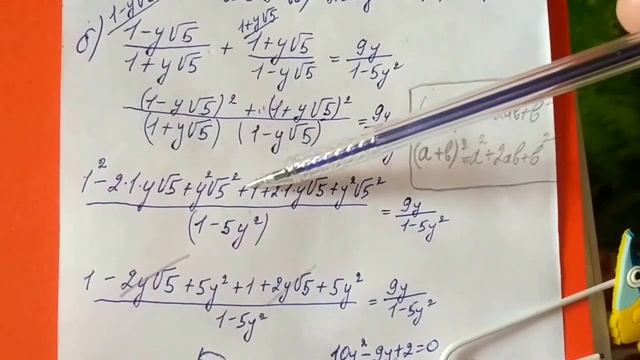 1-y√5 1+y√5
б) (1-y√5)/(1+y√5) + (1+y√5)/(1-y√5) = 9y/(1-5y²)
((1-y√5)² + (1+y√5)²)/((1+y√5) (1-y√5)) = 9y
(a+b)²=a²+2ab+b²
(1²-2·1·y√5+y²√5²+1+2·1·y√5+y²√5²)/(1-5y²) = 9y/(1-5y²)
(1-2y√5+5y²+1+2y√5+5y²)/(1-5y²) = 9y/(1-5y²)
10y²-9y+2=0